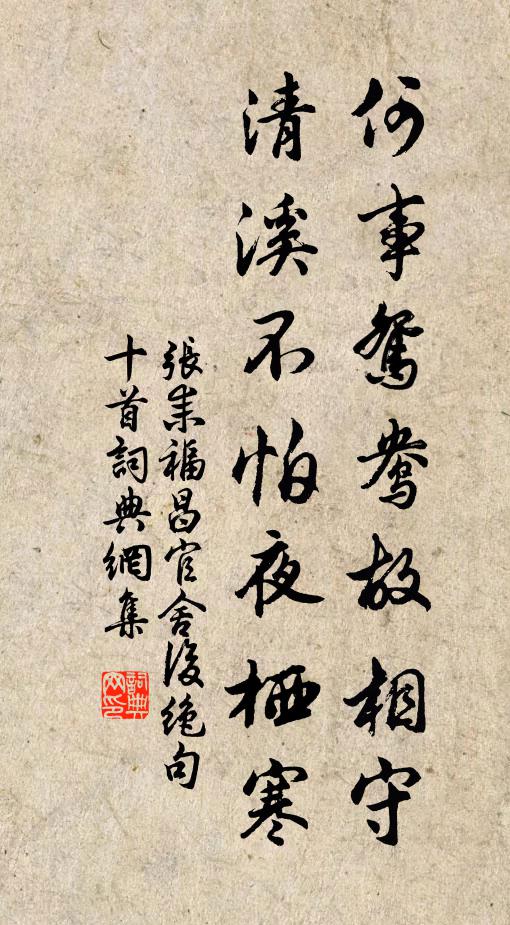 何事鴛鴦故相守
清溪不怕夜栖寒
張耒福昌官舍後絶句
十首詞典網集
詞典
网印